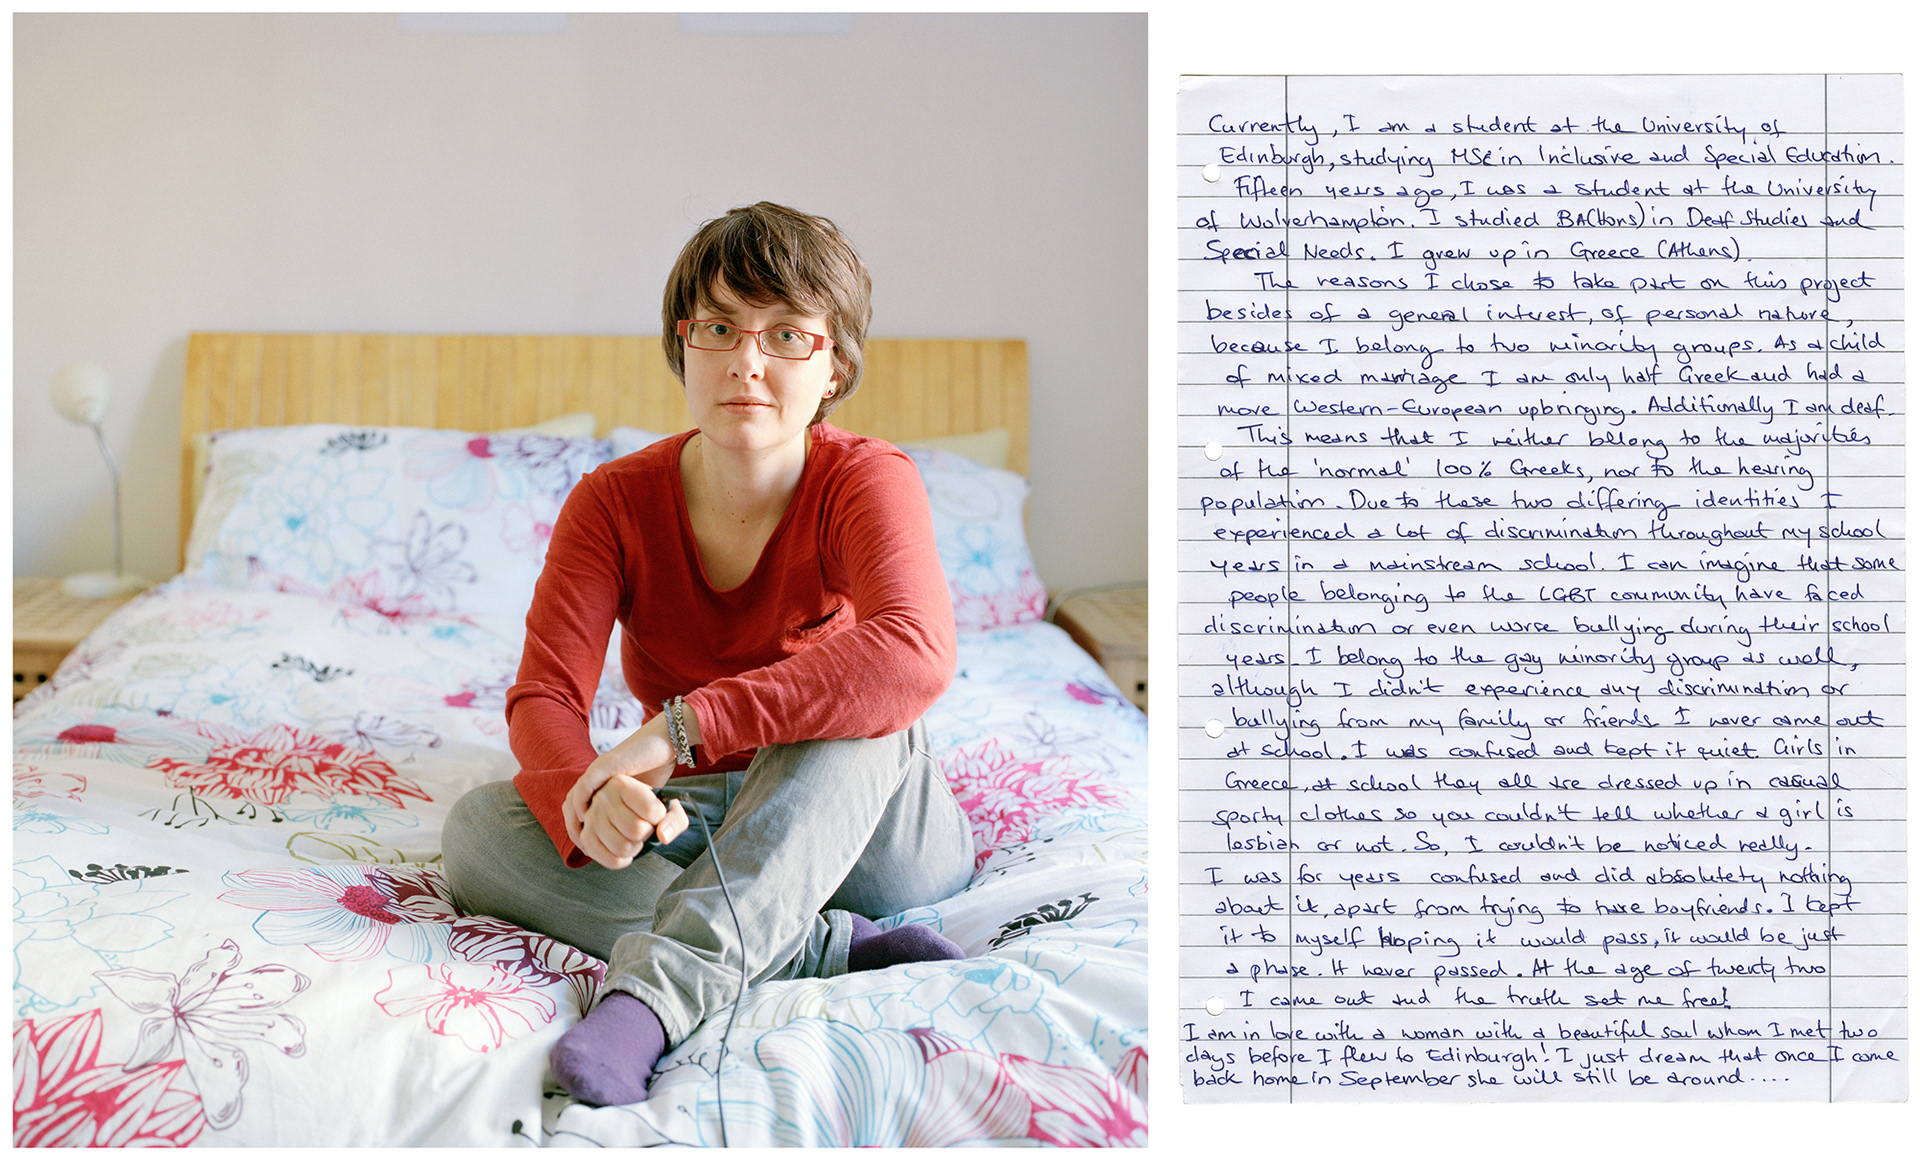 Currently, I am a student at the University of
Edinburgh, studying MSc in Inclusive and Special Education.
Fifteen years ago, I was a student at the University
of Wolverhampton. I studied BA(Hons) in Deaf Studies and
Special Needs. I grew up in Greece (Athens).
The reasons I chose to take part on this project
besides of a general interest, of personal nature,
because I belong to two minority groups. As a child
of mixed marriage I am only half Greek and had a
more Western-European upbringing. Additionally I am deaf.
This means that I neither belong to the majorities
of the 'normal' 100% Greeks, nor to the hearing
population. Due to these two differing identities I
experienced a lot of discrimination throughout my school
years in a mainstream school. I can imagine that some
people belonging to the LGBT community have faced
discrimination or even worse bullying during their school
years. I belong to the gay minority group as well,
although I didn't experience any discrimination or
bullying from my family or friends I never came out
at school. I was confused and kept it quiet. Girls in
Greece, at school they all are dressed up in casual
sporty clothes so you couldn't tell whether a girl is
lesbian or not. So, I couldn't be noticed really.
I was for years confused and did absolutety nothing
about it, apart from trying to have boyfriends. I kept
it to myself hoping it would pass, it would be just
a phase. It never passed. At the age of twenty two
I came out and the truth set me free!
I am in love with a woman with a beautiful soul whom I met two
days before I flew to Edinburgh! I just dream that once I come
back home in September she will still be around....